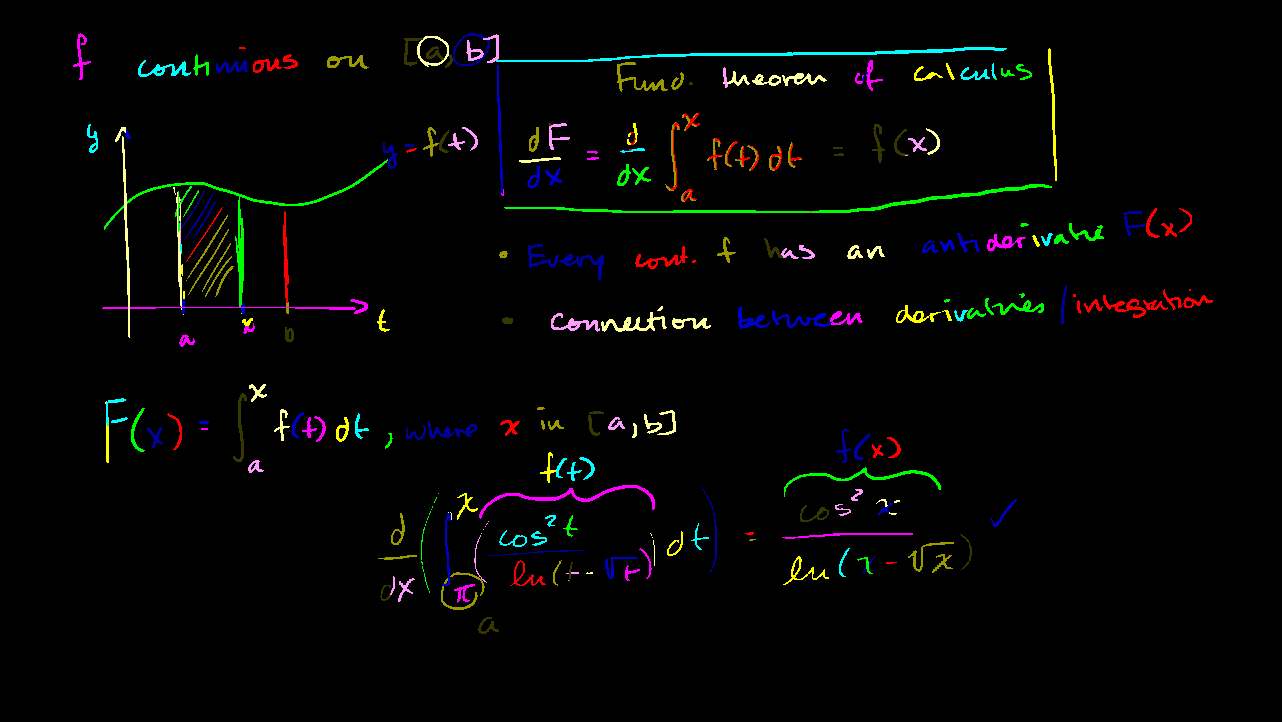 f continuous on [a, b]
Fund. theorem of calculus
dF/dx = d/dx ∫_a^x f(t) dt = f(x)
y
y = f(t)
a x b t
• Every cont. f has an antiderivative F(x)
• Connection between derivatives / integration
F(x) = ∫_a^x f(t) dt, where x in [a, b]
f(t) f(x)
d/dx (∫_π^x (cos² t / ln(t - √t)) dt) = cos² x / ln(x - √x) ✓
a